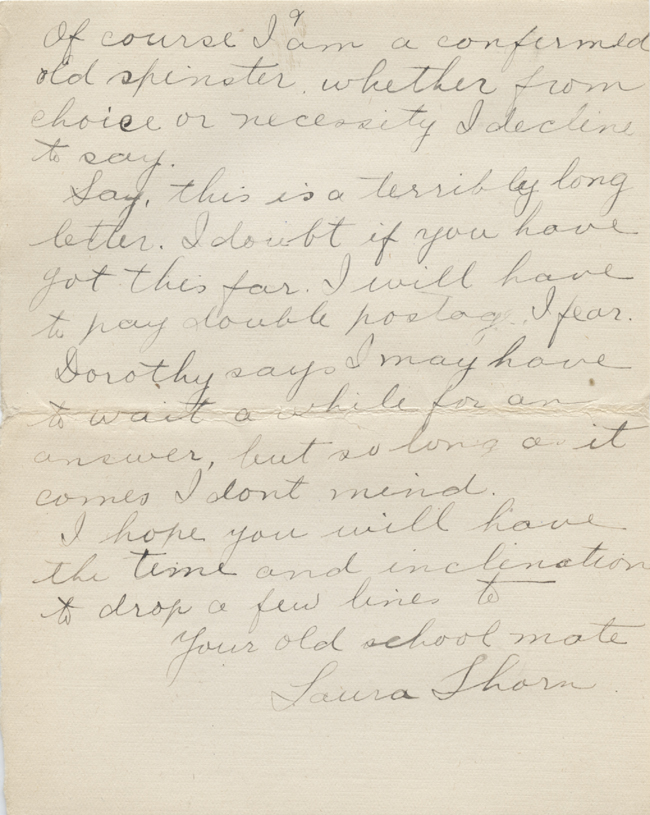 Of course I am a confirmed
old spinster. whether from
choice or necessity I decline
to say.
Say, this is a terribly long
letter. I doubt if you have
got this far. I will have
to pay double postag. I fear.
Dorothy says I may have
to wait a while for an
answer, but so long as it
comes I dont mind.
I hope you will have
the time and inclination
to drop a few lines to
Your old school mate
Laura Thorn.